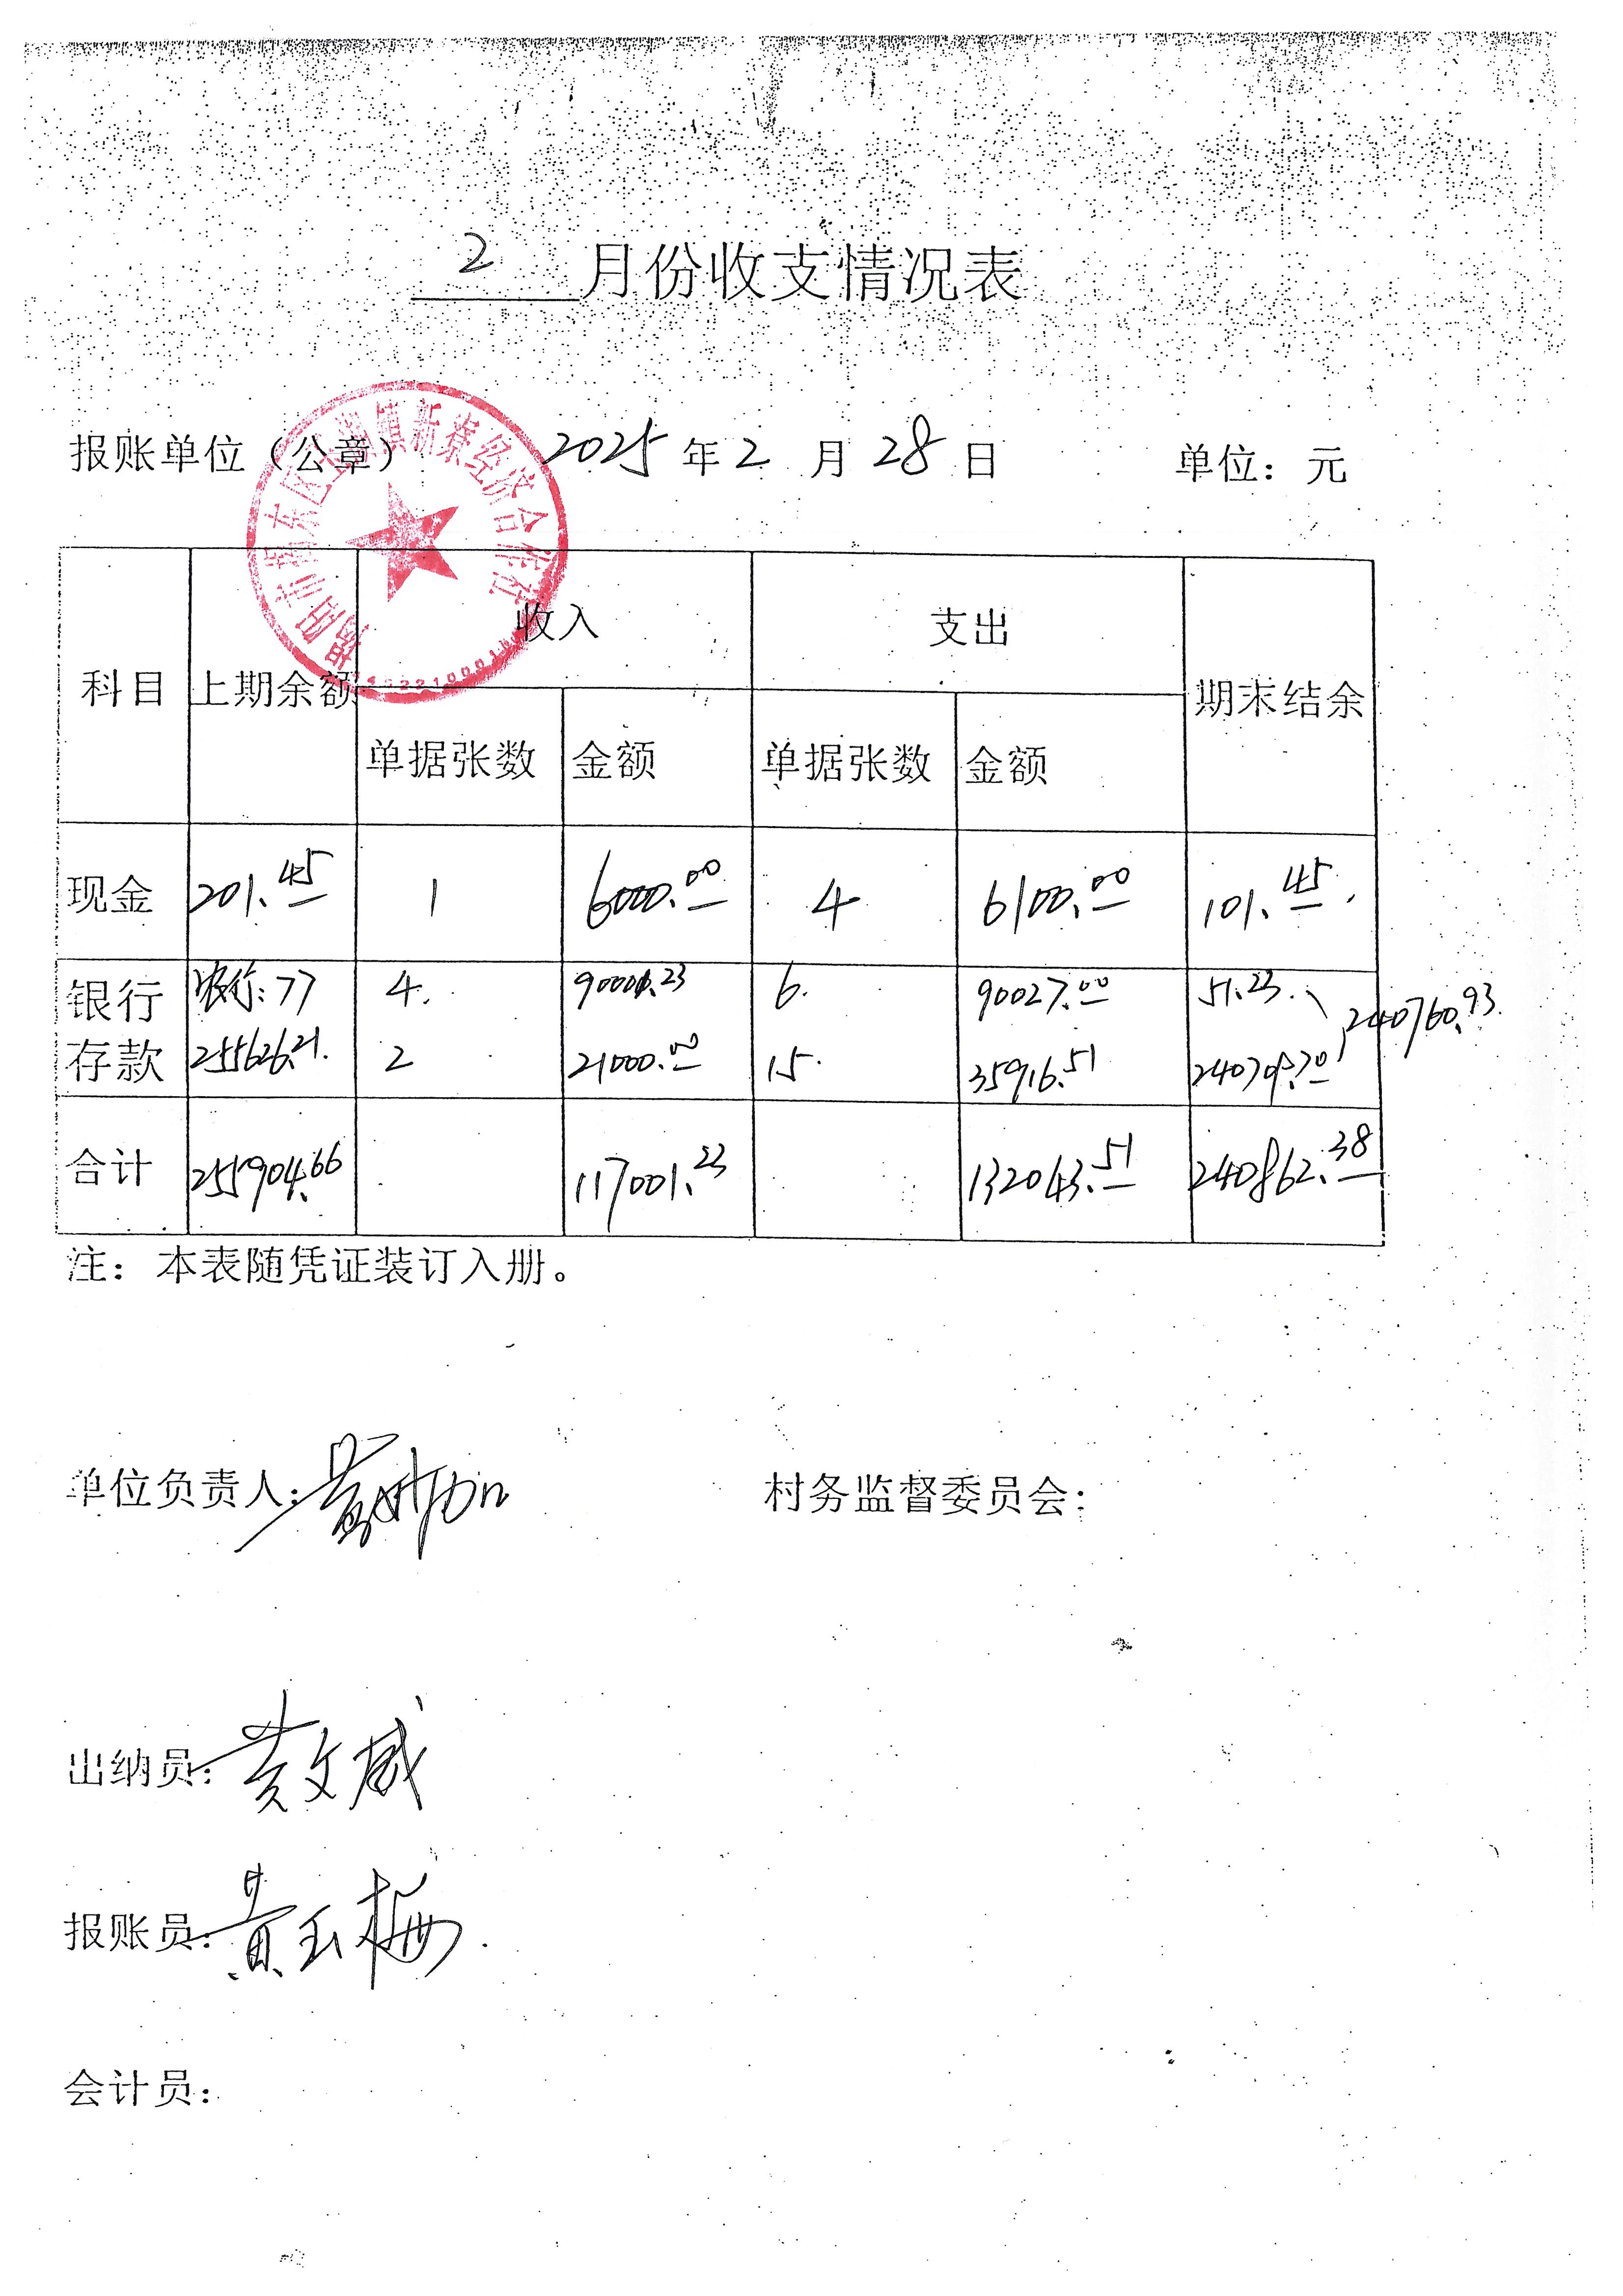 2 月份收支情况表
报账单位（公章） 2025 年 2 月 28 日 单位：元
科目 上期余额 收入 支出 期末结余
单据张数 金额 单据张数 金额
现金 201.45 1 6000.00 4 6100.00 101.45
银行存款 农行:77 4. 90001.23 6. 90027.00 51.23
255626.21. 2 21000.00 15. 35916.51 240709.70
240760.93.
合计 255904.66 117001.23 132043.51 240862.38
注：本表随凭证装订入册。
单位负责人： 村务监督委员会：
出纳员：黄文威
报账员：黄玉梅
会计员：